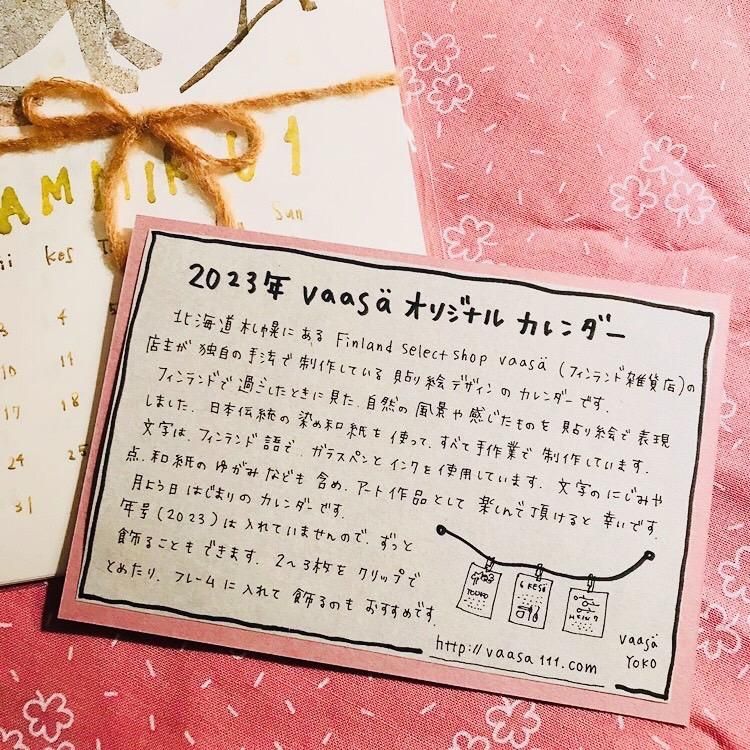 AMMIKU 1
Sun
ii kes T
3 4 5
10 11
17 18
24 25
31
2023年 vaasä オリジナル カレンダー
北海道札幌にある Finland select shop vaasä (フィンランド雑貨店)の
店主が 独自の手法で 制作している 貼り絵デザインの カレンダーです。
フィンランドで 過ごしたときに見た、自然の 風景や感じたものを 貼り絵で 表現
しました。日本伝統の染め和紙を 使って、すべて手作業で 制作しています。
文字は、フィンランド語で、ガラスペンとインクを使用しています。文字のにじみや
点、和紙の ゆがみなども 含め、アート作品として 楽しんで頂けると 幸いです。
月よう日 はじまりの カレンダーです。
年号(2023)は入れていませんので、ずっと
飾ることもできます。2〜3枚を クリップで
とめたり、フレームに入れて 飾るのも おすすめです。
TOUKO
6 KESÄ
HEINÄ 7
vaasä
YOKO
http://vaasa111.com